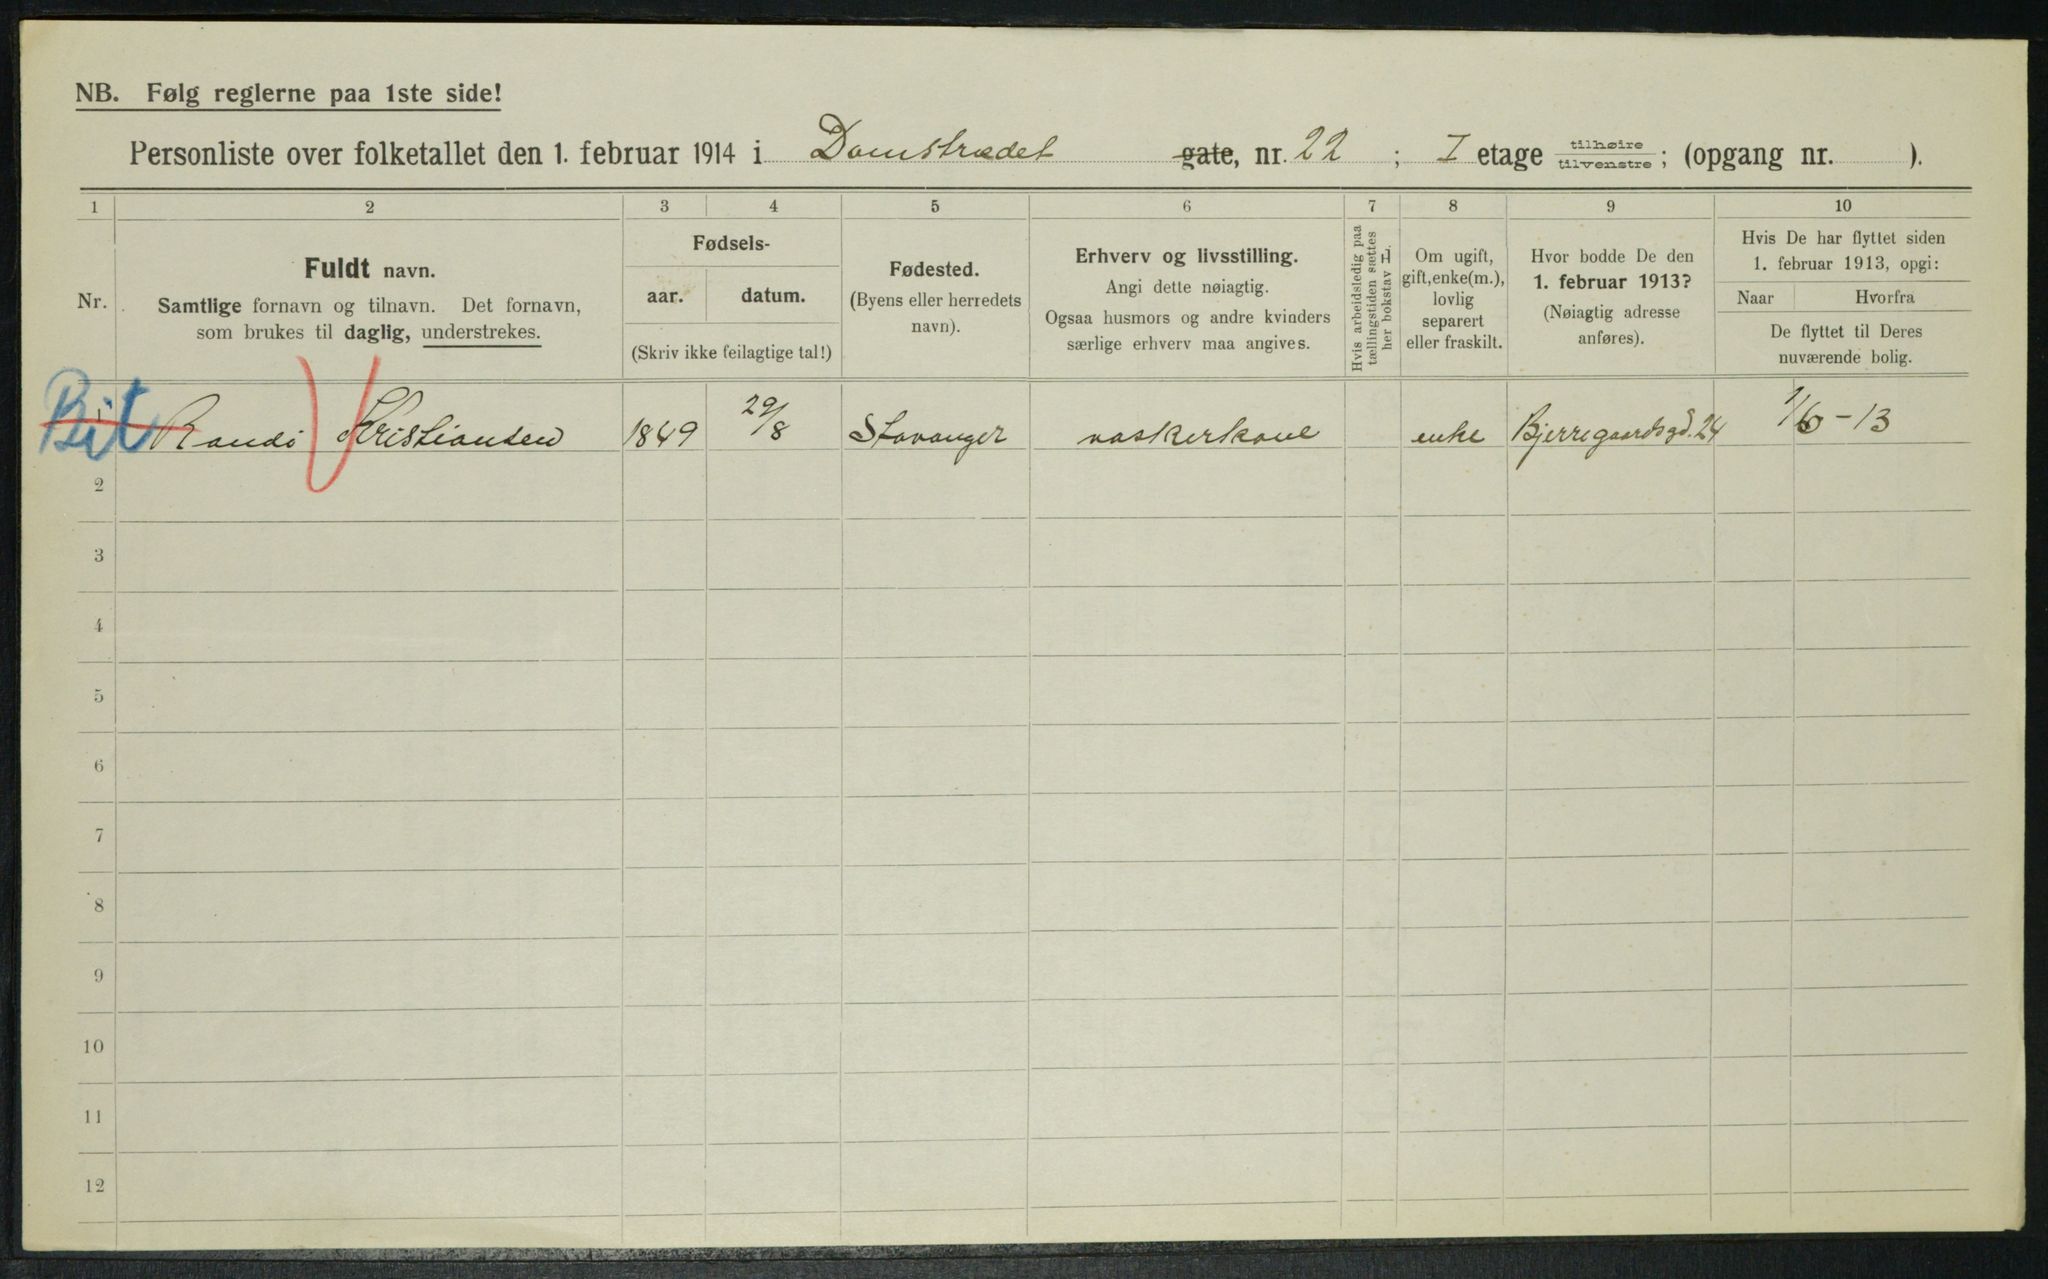 NB. Følg reglerne paa 1ste side!
Personliste over folketallet den 1. februar 1914 i Damstrædet gate, nr. 22 ; I etage tilhøire tilvenstre ; (opgang nr. ).
1 2 3 4 5 6 7 8 9 10
Nr.
Fuldt navn.
Samtlige fornavn og tilnavn. Det fornavn,
som brukes til daglig, understrekes.
Fødsels-
aar. datum.
(Skriv ikke feilagtige tal!)
Fødested.
(Byens eller herredets
navn).
Erhverv og livsstilling.
Angi dette nøiagtig.
Ogsaa husmors og andre kvinders
særlige erhverv maa angives.
Hvis arbeidsledig paa
tællingstiden sættes
her bokstav L.
Om ugift,
gift, enke(m.),
lovlig
separert
eller fraskilt.
Hvor bodde De den
1. februar 1913?
(Nøiagtig adresse
anføres).
Hvis De har flyttet siden
1. februar 1913, opgi:
Naar Hvorfra
De flyttet til Deres
nuværende bolig.
Bit
1 Randi Kristiansen 1849 29/8 Stavanger vaskerkone enke Bjerregaardsgd. 24 1/6-13
2
3
4
5
6
7
8
9
10
11
12